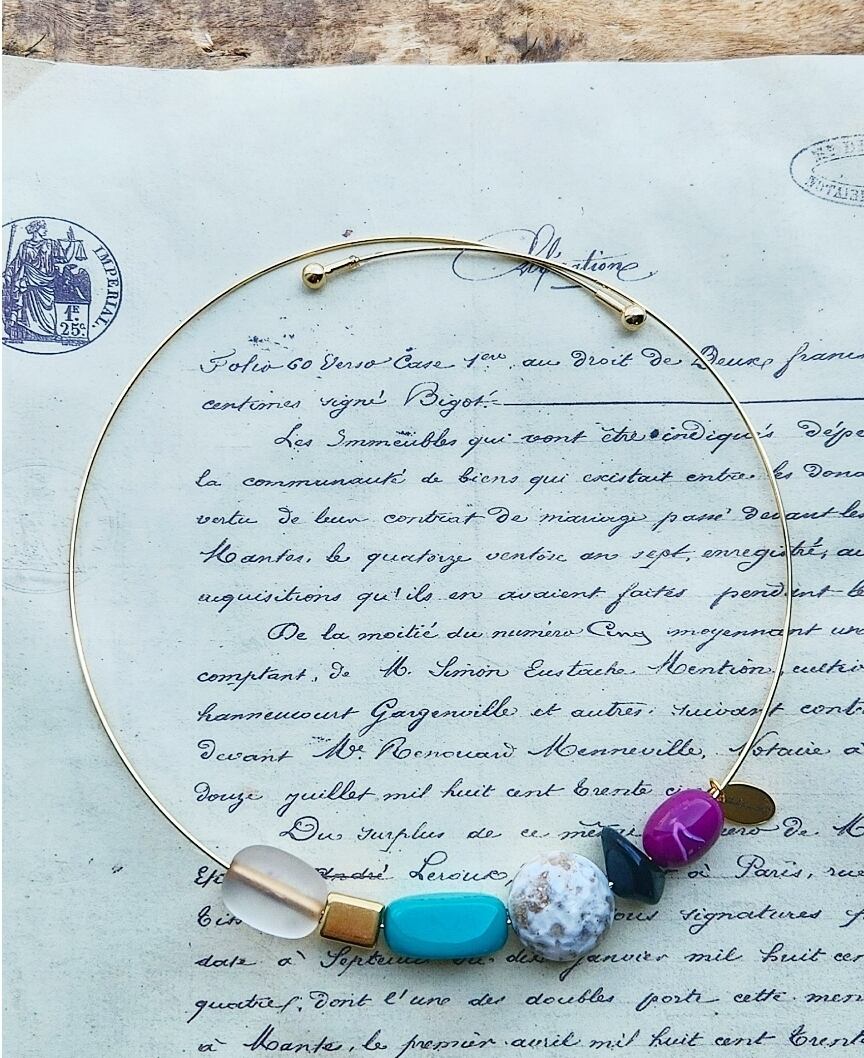 IMPERIAL.
1F.
25c.
Obligation
Folio 60 Verso Case 1ere, au droit de Deux francs
centimes signé Bigot.
Les Immeubles qui vont être indiqués dépe
la communauté de biens qui existait entre les dona
vertu de leur contrat de mariage passé devant les
Mantes, le quatorze ventôse an sept, enregistré, au
acquisitions qu'ils en avaient faites pendant le
De la moitié du numéro Cinq moyennant un
comptant, de M. Simon Eustache Mention, cultiv
hanneucourt Gargenville et autres, suivant cont
devant Me. Renouard Menneville, Notaire à
douze juillet mil huit cent trente ci
Du surplus de ce numéro de M
André Leroux, à Paris, rue
ous signatures
date à janvier mil huit cen
quatre, dont l'une des doubles porte cette men
à Mante, le premier avril mil huit cent trente